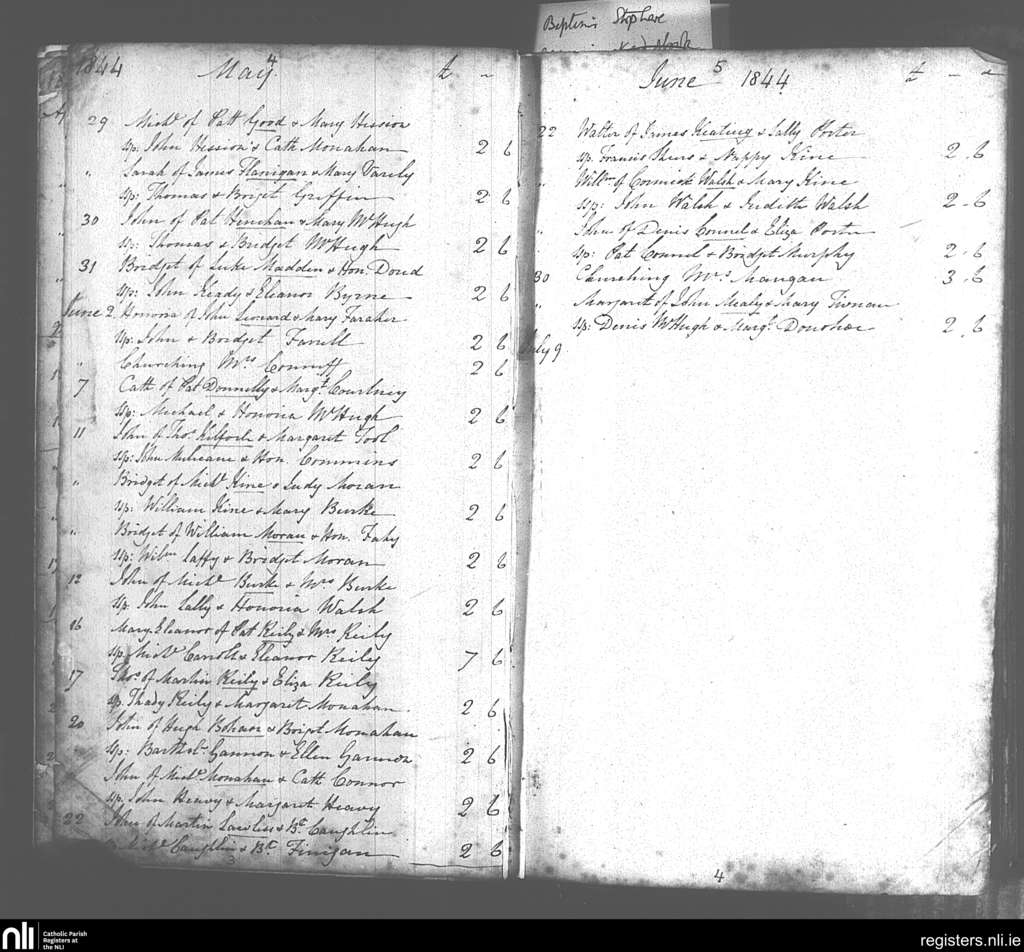 Baptisms Stop here
1844 May 4 £ -
29 Michl of Patt Good & Mary Hession
sp: John Hession & Cath Monahan 2 6
" Sarah of James Flanigan & Mary Varily
sp: Thomas & Bridget Griffin 2 6
30 John of Pat Henehan & Mary McHugh
sp: Thomas & Bridget McHugh 2 6
31 Bridget of Luke Madden & Hon. Doud
sp: John Keady & Eleanor Byrne 2 6
June 2 Honoria of John Leonard & Mary Faraher
sp: John & Bridget Farrell 2 6
" Churching Mrs Conroy 2 6
7 Cath of Pat Donnelly & Margt Courtney
sp: Michael & Honoria McHugh 2 6
11 John of Thos Kilfoile & Margaret Tool
sp: John Mulreane & Hon. Commins 2 6
" Bridget of Michl Kine & Judy Moran
sp: William Kine & Mary Burke 2 6
" Bridget of William Moran & Hon. Fahy
sp: Willm Laffy & Bridget Moran 2 6
12 John of Michl Burke & Mrs Burke
sp: John Lally & Honoria Walsh 2 6
16 Mary Eleanor of Pat Reily & Mrs Reily
sp. Michl Carroll & Eleanor Reily 7 6
17 Thos of Martin Reily & Eliza Reily
sp. Thady Reily & Margaret Monahan 2 6
20 John of Hugh Bohan & Bridgt Monahan
sp: Barthol Gannon & Ellen Gannon 2 6
John of Michl Monahan & Cath Connor
sp. John Heavy & Margaret Heavy 2 6
22 John of Martin Lawless & Bt Caughlin
Michl Caughlin & Bt Finigan 2 6
3
June 5 1844 £ -
22 Walter of James Keating & Sally Porter
sp. Francis Piers & Nappy Kine 2.6
" Willm of Cormick Walsh & Mary Kine
sp: John Walsh & Judith Walsh 2.6
" John of Denis Connel & Eliza Porter
sp: Pat Connel & Bridget Murphy 2.6
30 Churching Mrs Mangan 3.6
" Margaret of John Mealy & Mary Tiernan
sp: Denis McHugh & Margt Donohoe 2.6
July 9
4
nli Catholic Parish
Registers at
the NLI
registers.nli.ie